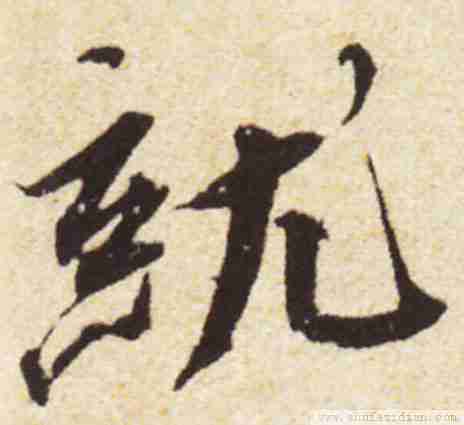 就
www.shufazidian.com